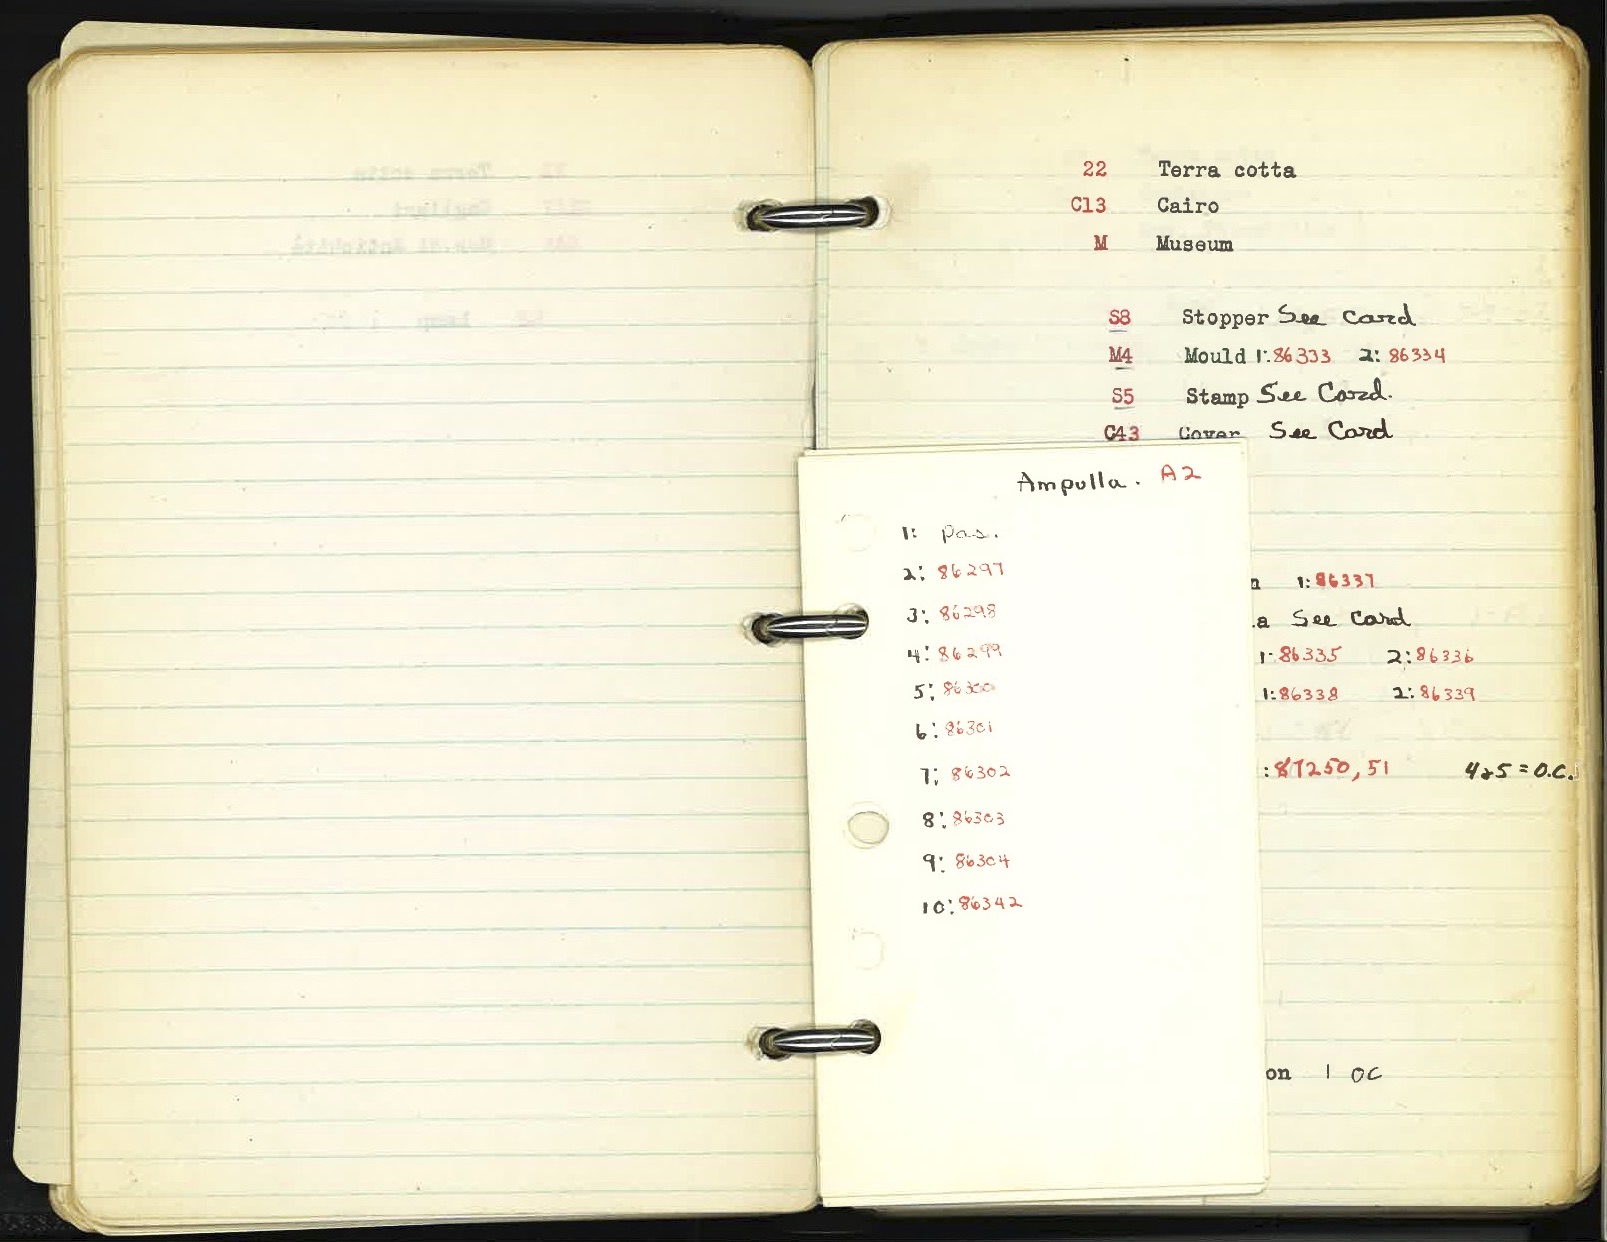 22 Terra cotta
C13 Cairo
M Museum
S8 Stopper See card
M4 Mould 1:86333 2:86334
S5 Stamp See Card.
C43 Cover See Card
Ampulla. A2
1: pos.
2: 86297
3: 86298
4: 86299
5: 86300
6: 86301
7: 86302
8: 86303
9: 86304
10: 86342
n 1:86337
a See Card
1:86335 2:86336
1:86338 2:86339
:87250,51 4&5=O.C.
on 1 OC